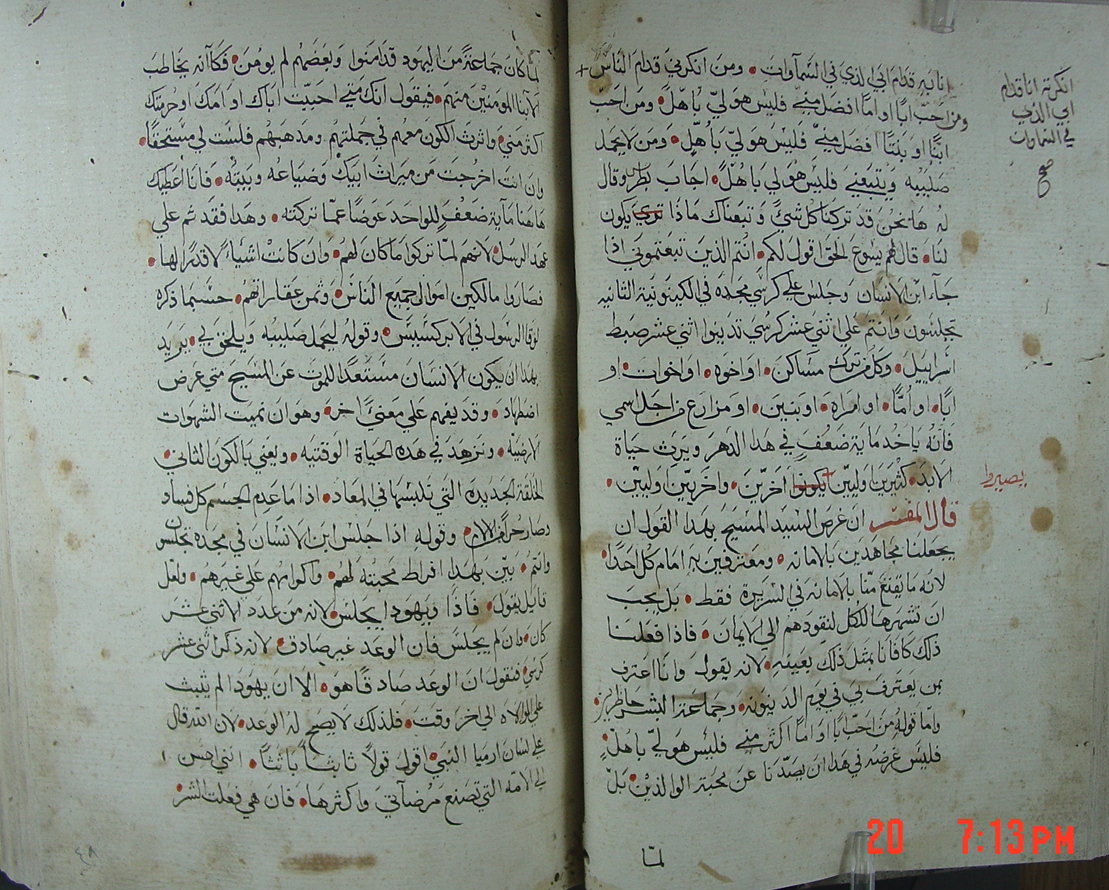 انا به قدام ابي الذي في السماوات • ومن انكرني قدام الناس +
ومن احب ابًا او امًا افضل مني فليس هو لي باهلٍ • ومن احب
ابنًا او بنتًا افضل مني فليس هو لي باهلٍ • ومن لا يحمل
صليبه ويتبعني فليس هو لي باهلٍ • اجاب بطرس وقال
له ها نحن قد تركنا كل شيٍ وتبعناك ماذا ترى يكون
لنا • قال لهم يسوع الحق اقول لكم • انتم الذين تبعتموني اذا
جاء ابن الانسان وجلس على كرسي مجده في الكينونية الثانيه
تجلسون وانتم على اثني عشر كرسي تدينوا اثني عشر صبط
اسراييل • وكل من ترك مساكن • او اخوه • او اخوات • او
ابًا • او امًا • او امراه • او بنين • او مزارع من اجل اسمي
فانه ياخد ماية ضعفٍ في هدا الدهر ويرث حياة
الابد • كثيرين اوليين يكونوا اخرين • واخريين اوليين •
قال المفسر ان غرض السيد المسيح بهدا القول ان
يجعلنا مجاهدين بالامانه • ومعترفين به امام كل احدًا •
لانه ما يقنع منا بالامانه في السريرة فقط • بل يجب
ان نشهرها للكل لنقودهم الى الايمان • فاذا فعلنا
ذلك كافانا بمثل ذلك بعينه • لانه يقول وانا اعترف
بمن يعترف بي في يوم الدينونه • وجماعة البشر حاظرين •
واما قوله من احب ابًا او امًا اكثر مني فليس هو لي باهلٍ •
فليس غرضه في هدا ان يصدنا عن محبة الوالدين • بل
لما
انكرته انا قدام
ابي الذي
في السماوات
صح
يصيروا
لما كان جماعةً من اليهود قد امنوا وبعضهم لم يومن • فكاانه يخاطب
الابنا المومنين منهم • فيقول انك متى احببت اباك او امك او حرمتك
اكثر مني • واثرت الكون معهم في جملتهم ومدهبهم فلست لي مستحقًا •
وان انت اخرجت من ميراث ابيك وضياعه وبيته • فانا اعطيك
هاهنا ماية ضعفٍ للواحد عوضًا عما تركته • وهدا فقد تم على
عهد الرسل • لانهم لما تركوا ما كان لهم • وان كانت اشياء لا قدرًا لها •
فصاروا مالكين اموال جميع الناس • وثمن عقاراتهم • حسبما ذكره
لوقا الرسول في الابركسيس • وقوله ليحمل صليبه ويلحق بي • يريد
بهدا ان يكون الانسان مستعدًا للموت عن المسيح متى عرض
اضطهاد • وقد يفهم على معنىً اخر • وهو ان نميت الشهوات
الارضيه • ونزهد في هده الحياة الوقتيه • ويعني بالكون الثاني •
الخلقة الجديدة التي نلبسها في المعاد • اذا ما عدم الجسم كل فساد
وصار حرًا من الالام • وقوله اذا جلس ابن الانسان في مجده تجلسون
وانتم • يبين بهدا افراط محبته لهم • واكرامهم على غيرهم • ولعل
قايل يقول • فاذا ويهودا يجلس • لانه من عدد الاثني عشر
كان • وان لم يجلس فان الوعد غير صادق • لانه ذكر اثني عشر
كرسي • فنقول ان الوعد صادقًا هو • الا ان يهودا لم يثبت
على الولاه الى اخر وقت • فلذلك لا يصح له الوعد • لان الله قال
على لسان ارميا النبي • اقول قولاً ثابتًا باتتًا • انني احسن
الى الامه التي تصنع مرضاتي واكثرها • فان هي فعلت الشر
٤٨
20 7:13 PM